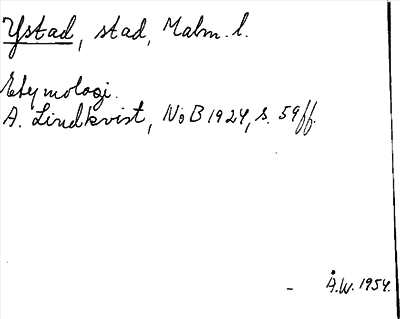 Ystad, stad, Malm. l.
Etymologi.
A. Lindkvist, NoB 1924, s. 59ff.
Å.W. 1954.